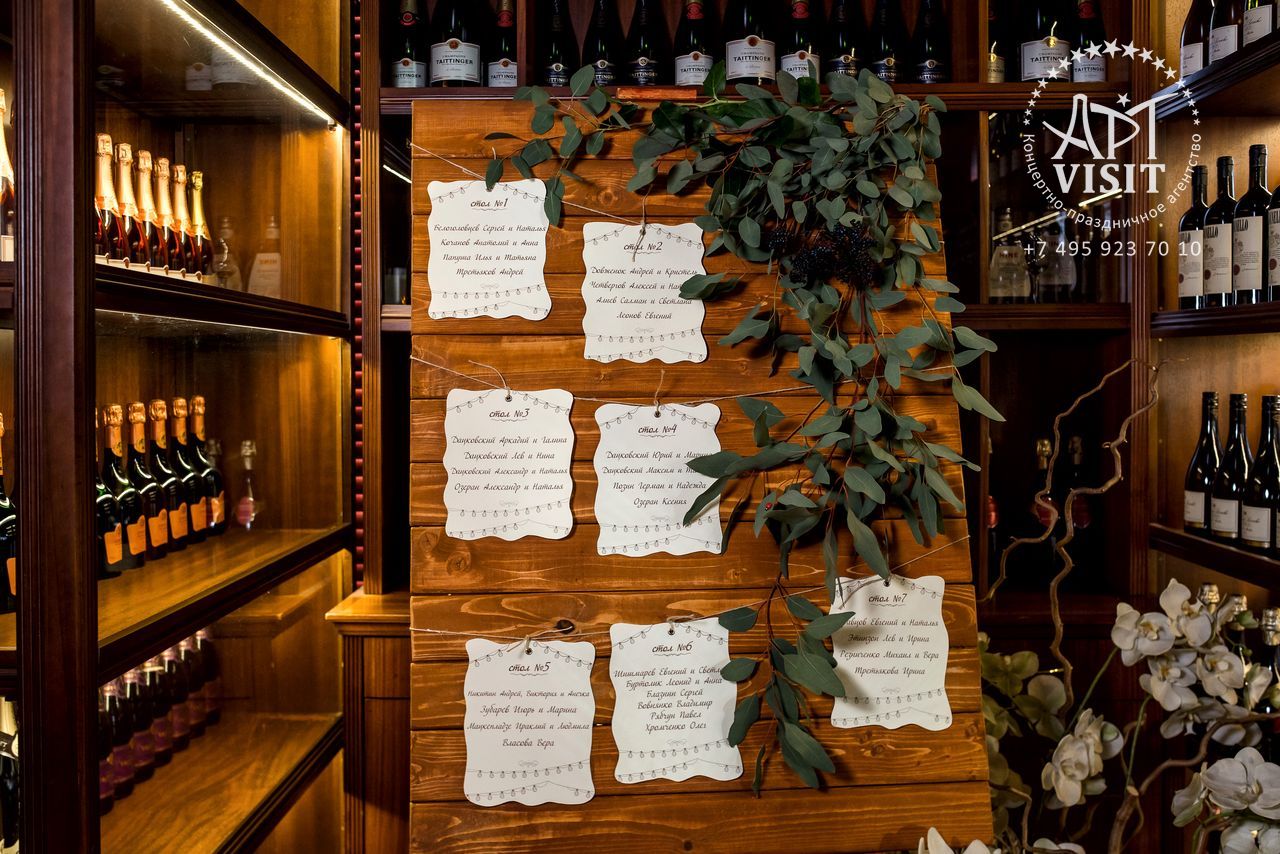 CHAMPAGNE
TAITTINGER
TAITTINGER
TAITTINGER
АРТ
VISIT
Концертно-праздничное агентство
+7 495 923 70 10
стол №1
Белоголовцев Сергей и Наталья
Кочанов Анатолий и Анна
Папуша Илья и Татьяна
Третьяков Андрей
стол №2
Довженок Андрей и Кристель
Четвергов Алексей и
Алиев Салман и Светлана
Леонов Евгений
стол №3
Дацковский Аркадий и Галина
Дацковский Лев и Нина
Дацковский Александр и Наталья
Озеран Александр и Наталья
стол №4
Дацковский Юрий и
Дацковский Максим и
Позин Герман и Надежда
Озеран Ксения
стол №5
Никитин Андрей, Виктория и Анечка
Зубарев Игорь и Марина
Манкепладзе Ираклий и Людмила
Власова Вера
стол №6
Шишмарев Евгений и
Буртолик Леонид и Анна
Блазнин Сергей
Вовнянко Владимир
Рябчун Павел
Хромченко Олег
стол №7
Евгений и Наталья
Этинзон Лев и Ирина
Резниченко Михаил и Вера
Третьякова Ирина